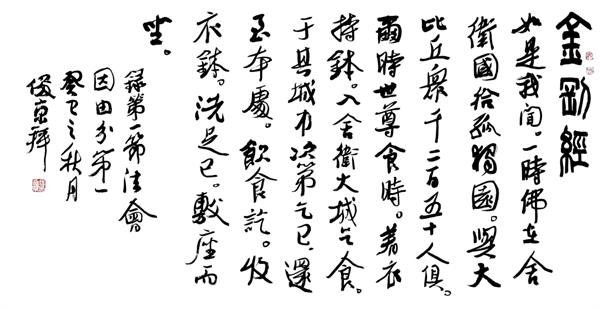 金剛經
如是我聞。一時佛在舍
衛國給孤獨園。與大
比丘衆千二百五十人俱。
爾時世尊食時。著衣
持鉢。入舍衛大城乞食。
于其城中次第乞已。還
至本處。飯食訖。收
衣鉢。洗足已。敷座而
坐。
錄第一節法會
因由分第一
癸巳之秋月
京拜